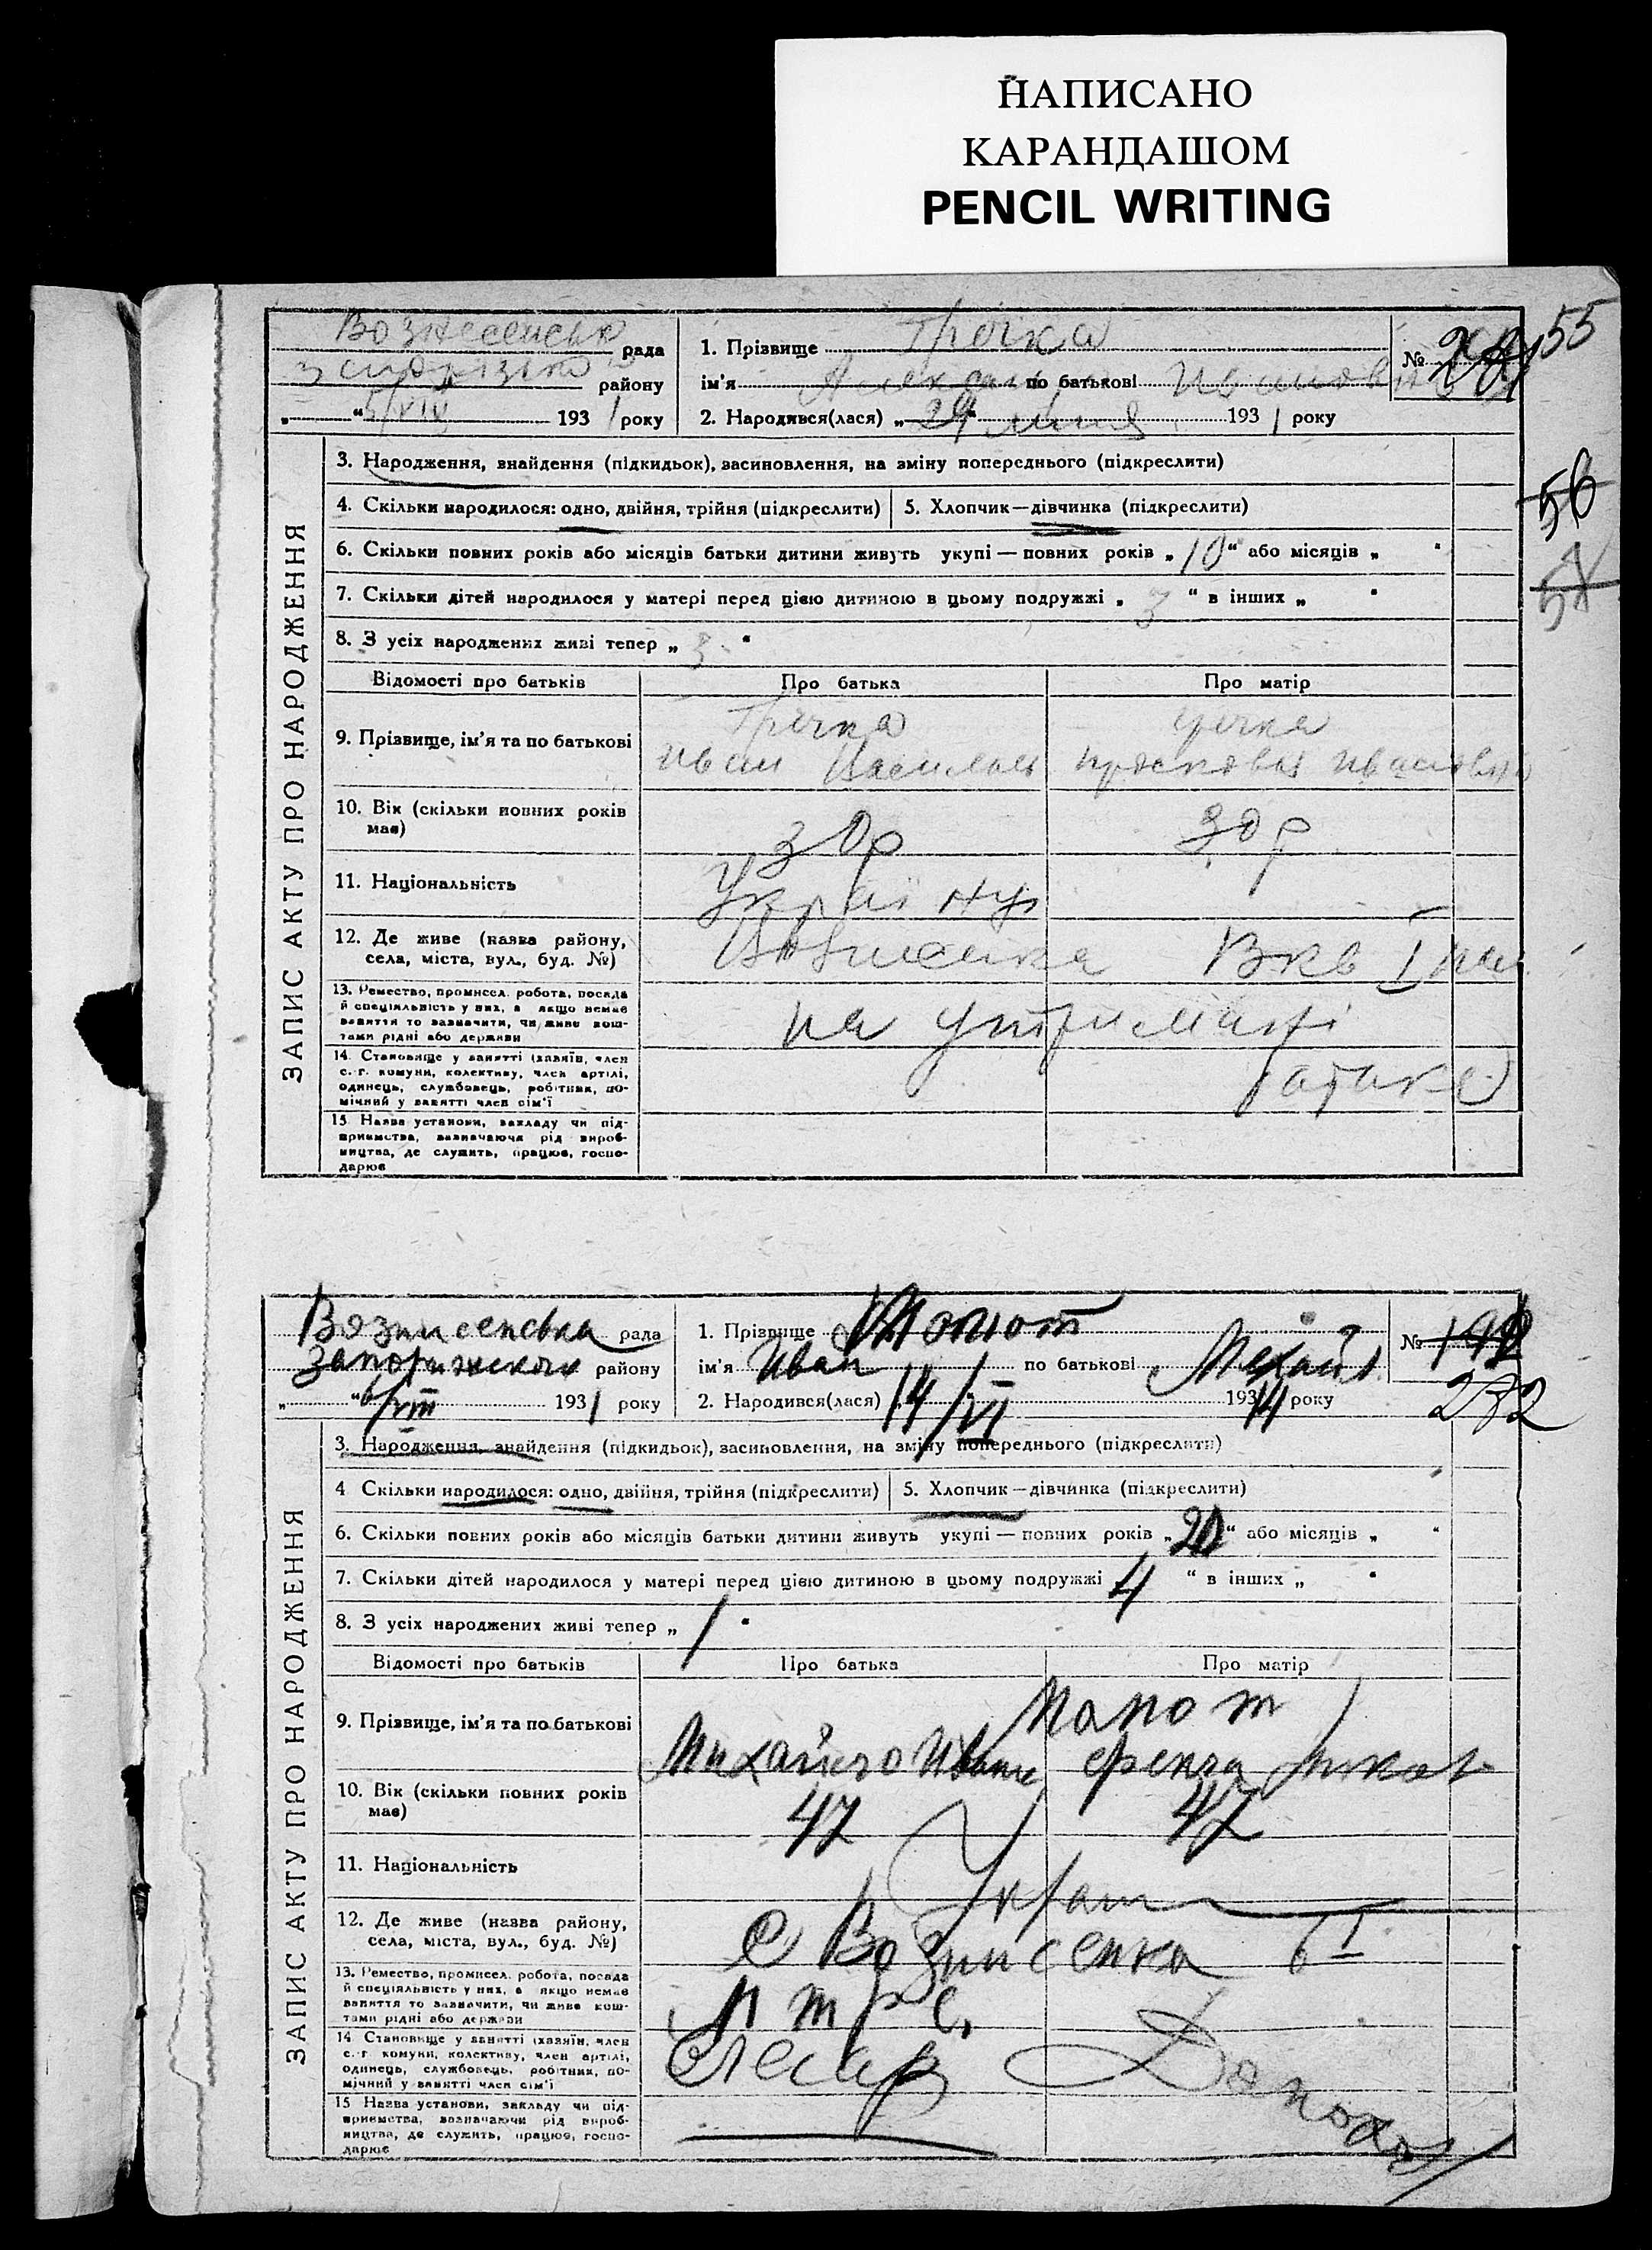 НАПИСАНО
КАРАНДАШОМ
PENCIL WRITING
55
рада
району
" " 5/VIII 1931 року
1. Прізвище Гречка
№
ім'я по батькові
2. Народився(лася) „29" липня 1931 року
56
ЗАПИС АКТУ ПРО НАРОДЖЕННЯ
3. Народження, знайдення (підкидьок), засиновлення, на зміну попереднього (підкреслити)
4. Скільки народилося: одно, двійня, трійня (підкреслити)
5. Хлопчик—дівчинка (підкреслити)
6. Скільки повних років або місяців батьки дитини живуть укупі — повних років „10" або місяців „ "
7. Скільки дітей народилося у матері перед цією дитиною в цьому подружжі „3" в інших „ "
8. З усіх народжених живі тепер „3"
Відомості про батьків
Про батька
Про матір
9. Прізвище, ім'я та по батькові
Гречка
Гречка
Иван
10. Вік (скільки повних років має)
30р
30р
11. Національність
12. Де живе (назва району, села, міста, вул., буд. №)
13. Ремество, промисел. робота, посада й спеціяльність у них, а якщо немає заняття то зазначити, чи живе коштами рідні або держави
на утриманні
14. Становище у занятті (хазяїн, член с.-г. комуни, колективу, член артілі, одинець, службовець, робітник, помічний у занятті член сім'ї
15. Назва установи, закладу чи підприємства, зазначаючи рід виробництва, де служить, працює, господарює
Вознисенська рада
району
" "6/VIII 1931 року
1. Прізвище
№
ім'я Иван по батькові Михайл
282
2. Народився(лася) 14/VI 1931 року
ЗАПИС АКТУ ПРО НАРОДЖЕННЯ
3. Народження, знайдення (підкидьок), засиновлення, на зміну попереднього (підкреслити)
4 Скільки народилося: одно, двійня, трійня (підкреслити)
5. Хлопчик—дівчинка (підкреслити)
6. Скільки повних років або місяців батьки дитини живуть укупі — повних років „20" або місяців „ "
7. Скільки дітей народилося у матері перед цією дитиною в цьому подружжі 4 " в інших „ "
8. З усіх народжених живі тепер „1"
Відомості про батьків
Про батька
Про матір
9. Прізвище, ім'я та по батькові
Михайло Иван
10. Вік (скільки повних років має)
47
42
11. Національність
Украин
12. Де живе (назва району, села, міста, вул., буд. №)
с Вознисенка
13. Ремество, промисел. робота, посада й спеціяльність у них, а якщо немає заняття то зазначити, чи живе коштами рідні або держави
14 Становище у занятті (хазяїн, член с.-г. комуни, колективу, член артілі, одинець, службовець, робітник, помічний у занятті член сім'ї
Слесар
15 Назва установи, закладу чи підприємства, зазначаючи рід виробництва, де служить, працює, господарює